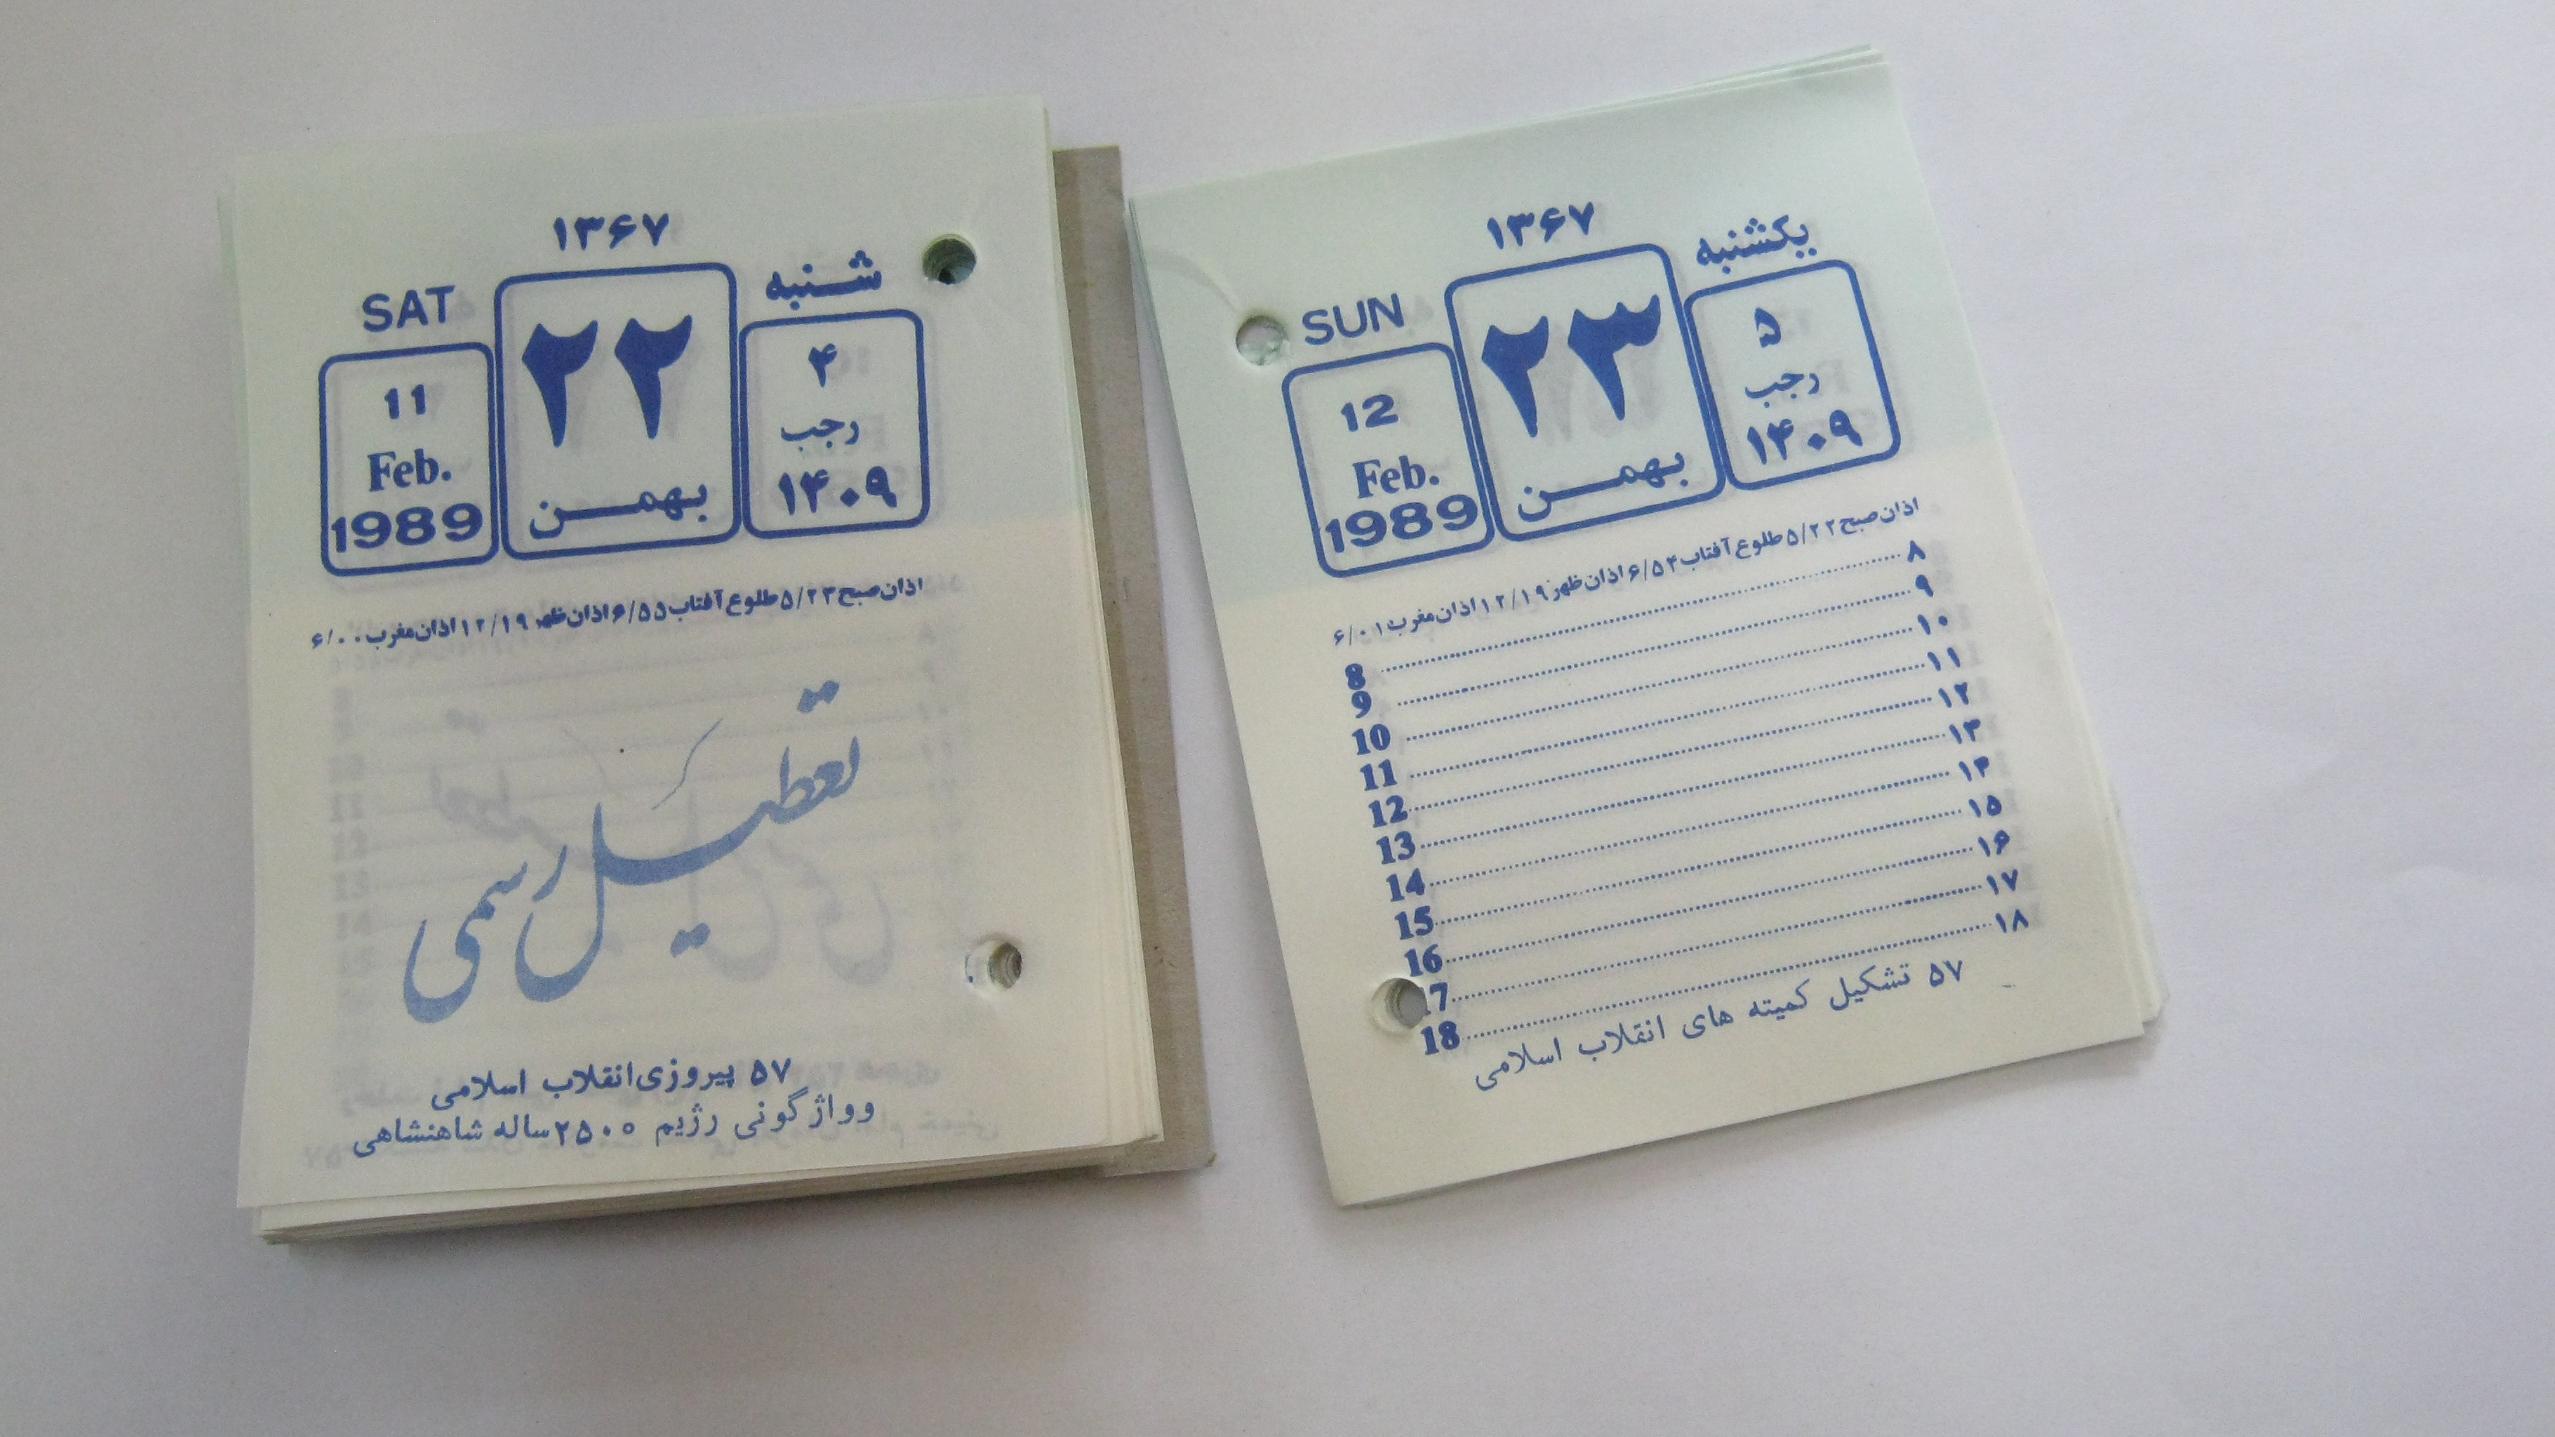 ۱۳۶۷
SAT
شنبه
11
Feb.
1989
۲۲
بهمن
۴
رجب
۱۴۰۹
اذان صبح ۵/۲۳ طلوع آفتاب ۶/۵۵ اذان ظهر ۱۲/۱۹ اذان مغرب ۶/۰۰
تعطیل رسمی
۵۷ پیروزی انقلاب اسلامی
وواژگونی رژیم ۲۵۰۰ ساله شاهنشاهی
۱۳۶۷
SUN
یکشنبه
12
Feb.
1989
۲۳
بهمن
۵
رجب
۱۴۰۹
اذان صبح ۵/۲۲ طلوع آفتاب ۶/۵۴ اذان ظهر ۱۲/۱۹ اذان مغرب ۶/۰۱
8 ۸
9 ۹
10 ۱۰
11 ۱۱
12 ۱۲
13 ۱۳
14 ۱۴
15 ۱۵
16 ۱۶
17 ۱۷
18 ۱۸
۵۷ تشکیل کمیته های انقلاب اسلامی